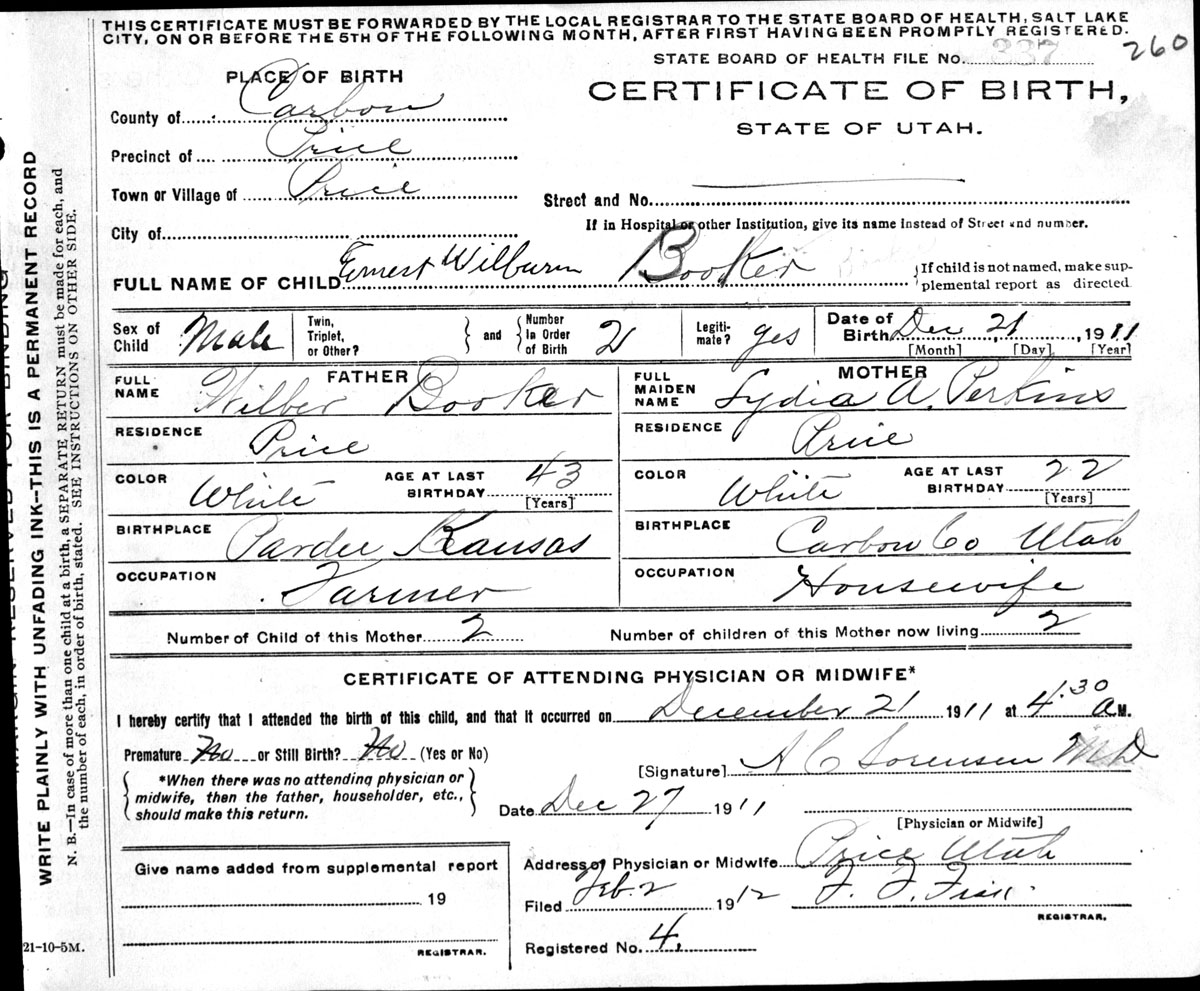 THIS CERTIFICATE MUST BE FORWARDED BY THE LOCAL REGISTRAR TO THE STATE BOARD OF HEALTH, SALT LAKE
CITY, ON OR BEFORE THE 5TH OF THE FOLLOWING MONTH, AFTER FIRST HAVING BEEN PROMPTLY REGISTERED.
STATE BOARD OF HEALTH FILE No. 337 260
PLACE OF BIRTH
CERTIFICATE OF BIRTH,
STATE OF UTAH.
County of Carbon
Precinct of Price
Town or Village of Price
Street and No.
City of
If in Hospital or other Institution, give its name Instead of Street and number.
FULL NAME OF CHILD Ernest Wilburn Booker
If child is not named, make sup-
plemental report as directed.
Sex of Child Male
Twin, Triplet, or Other? and Number In Order of Birth 2
Legiti-mate? yes
Date of Birth Dec 21, 1911
[Month] [Day] [Year]
FATHER
FULL NAME Wilber Booker
MOTHER
FULL MAIDEN NAME Lydia A. Perkins
RESIDENCE Price
RESIDENCE Price
COLOR White AGE AT LAST BIRTHDAY 43 [Years]
COLOR White AGE AT LAST BIRTHDAY 22 [Years]
BIRTHPLACE Pardee Kansas
BIRTHPLACE Carbon Co Utah
OCCUPATION Farmer
OCCUPATION Housewife
Number of Child of this Mother 2
Number of children of this Mother now living 2
CERTIFICATE OF ATTENDING PHYSICIAN OR MIDWIFE*
I hereby certify that I attended the birth of this child, and that it occurred on December 21 1911 at 4:30 A M.
Premature No or Still Birth? No (Yes or No)
*When there was no attending physician or
midwife, then the father, householder, etc.,
should make this return.
[Signature] A C Sorensen MD
Date Dec 27 1911
[Physician or Midwife]
Address of Physician or Midwife Price Utah
Filed Feb. 2 1912 F. F. Fisk
REGISTRAR.
Registered No. 4.
Give name added from supplemental report
19
REGISTRAR.
21-10-5M.
MARGIN RESERVED FOR BINDING
WRITE PLAINLY WITH UNFADING INK--THIS IS A PERMANENT RECORD
N. B.—In case of more than one child at a birth, a SEPARATE RETURN must be made for each, and
the number of each, in order of birth, stated. SEE INSTRUCTIONS ON OTHER SIDE.